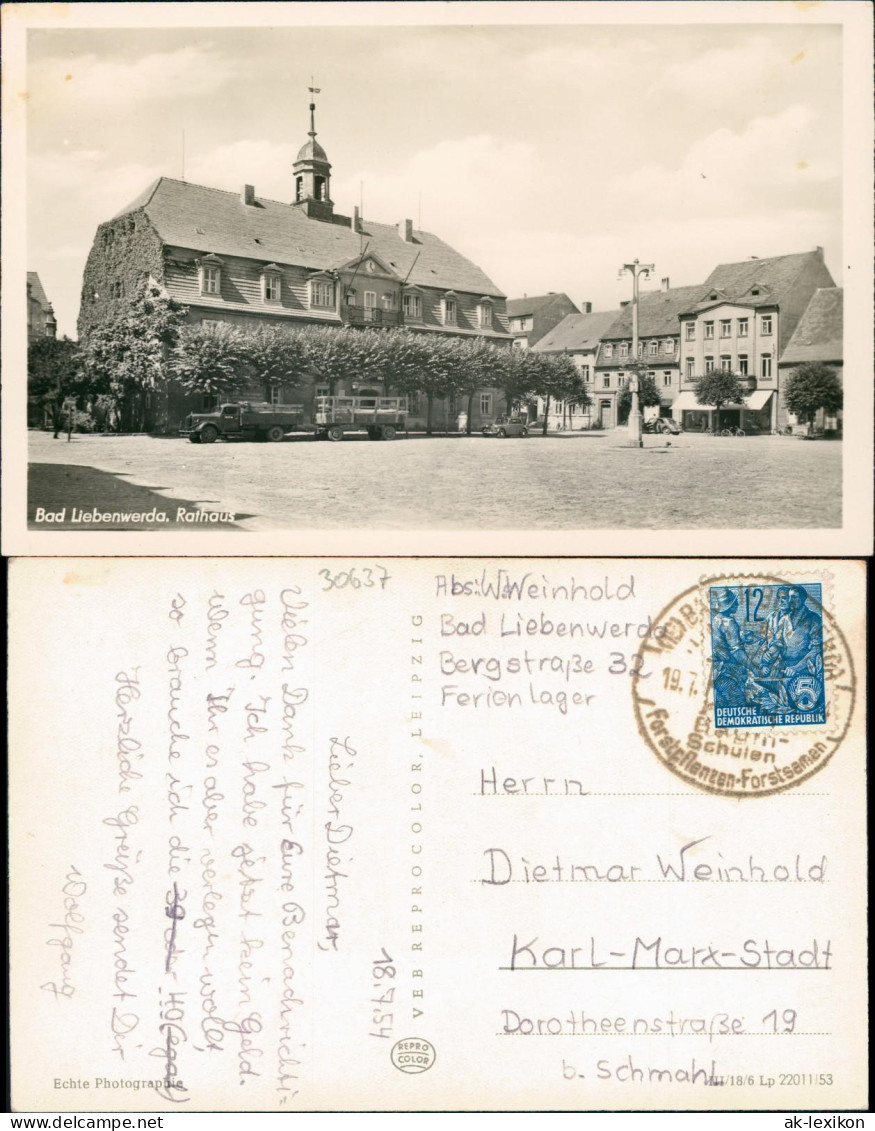 Bad Liebenwerda. Rathaus
30637
Abs: W. Weinhold
Bad Liebenwerda
Bergstraße 32
Ferienlager
12
5
DEUTSCHE
DEMOKRATISCHE REPUBLIK
19.7.
Schulen
Forstpflanzen-Forstsamen
18.7.54
Lieber Dietmar,
Vielen Dank für Eure Benachrichti-
gung. Ich habe jetzt kein Geld.
Wenn Ihr es aber verlegen wollt,
so brauche ich die 39 oder 40 (egal)
Herzliche Grüße sendet Dir
Wolfgang
VEB REPROCOLOR, LEIPZIG
REPRO
COLOR
Herrn
Dietmar Weinhold
Karl-Marx-Stadt
Dorotheenstraße 19
b. Schmahl
Echte Photographie
III/18/6 Lp 22011/53
ak-lexikon